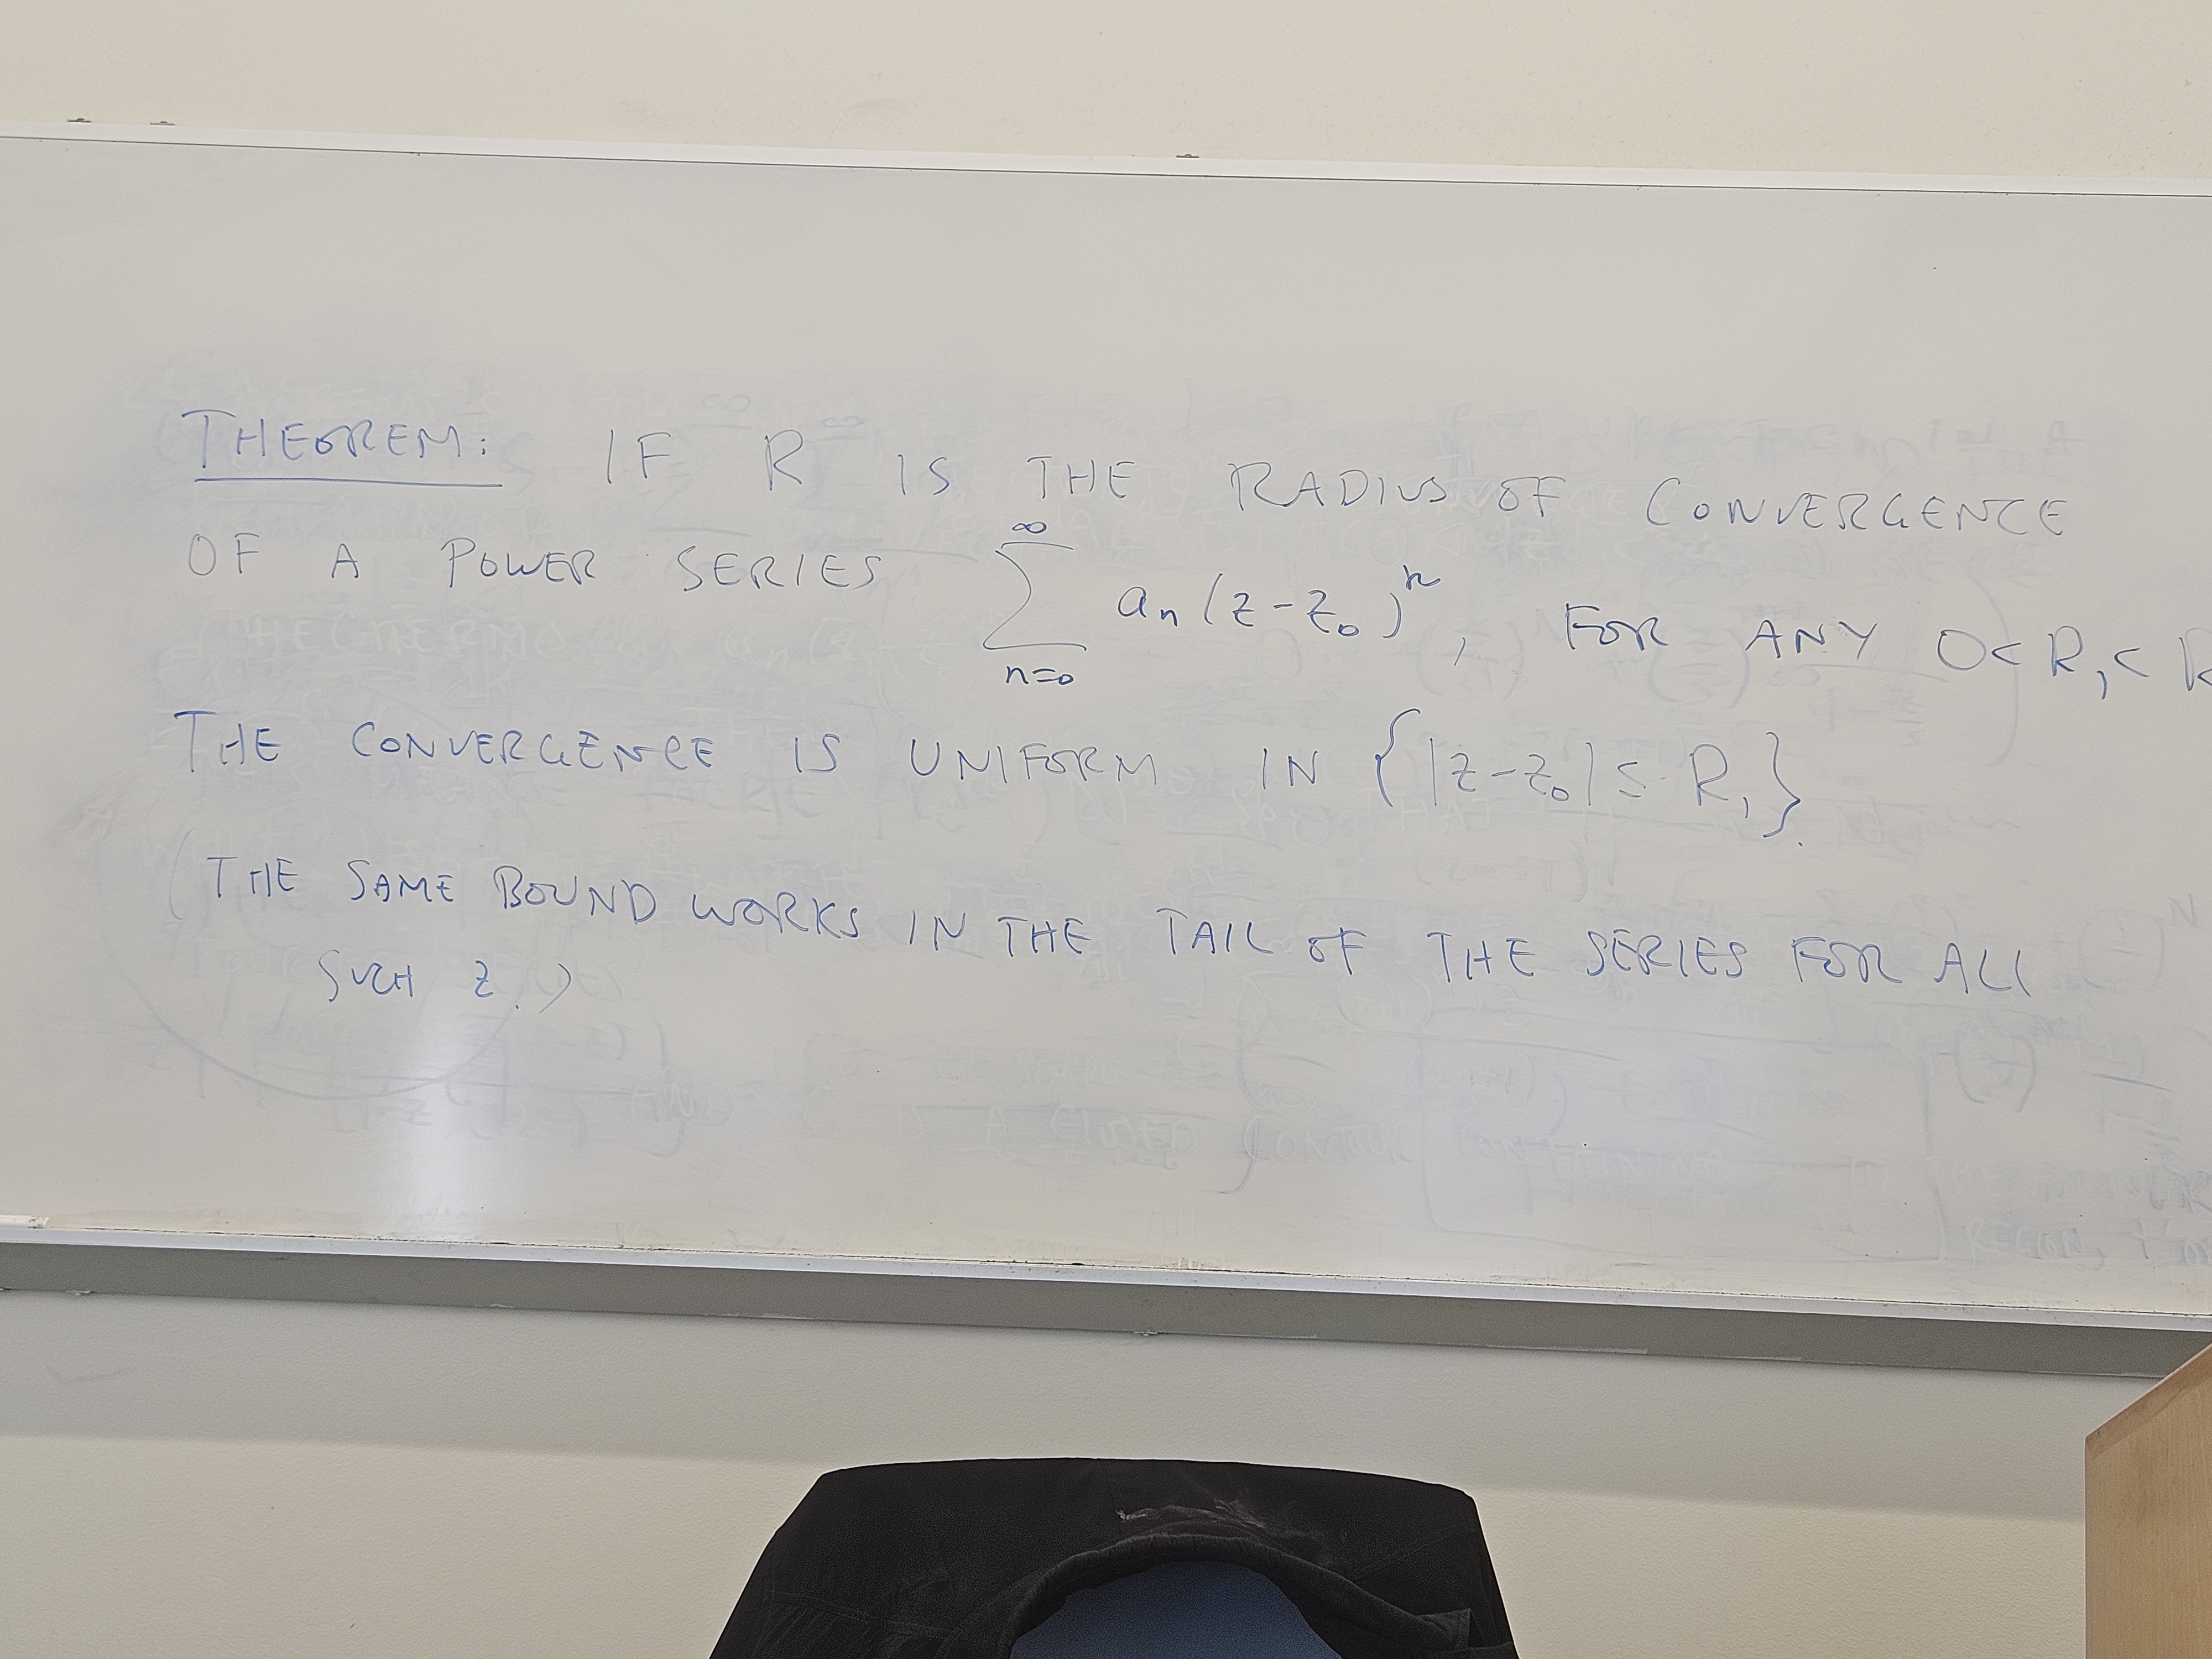 THEOREM: IF R IS THE RADIUS OF CONVERGENCE
OF A POWER SERIES ∑_{n=0}^{∞} a_n (z-z_0)^n, FOR ANY 0< R_1 < R
THE CONVERGENCE IS UNIFORM IN {|z-z_0| ≤ R_1}.
(THE SAME BOUND WORKS IN THE TAIL OF THE SERIES FOR ALL
SUCH z.)